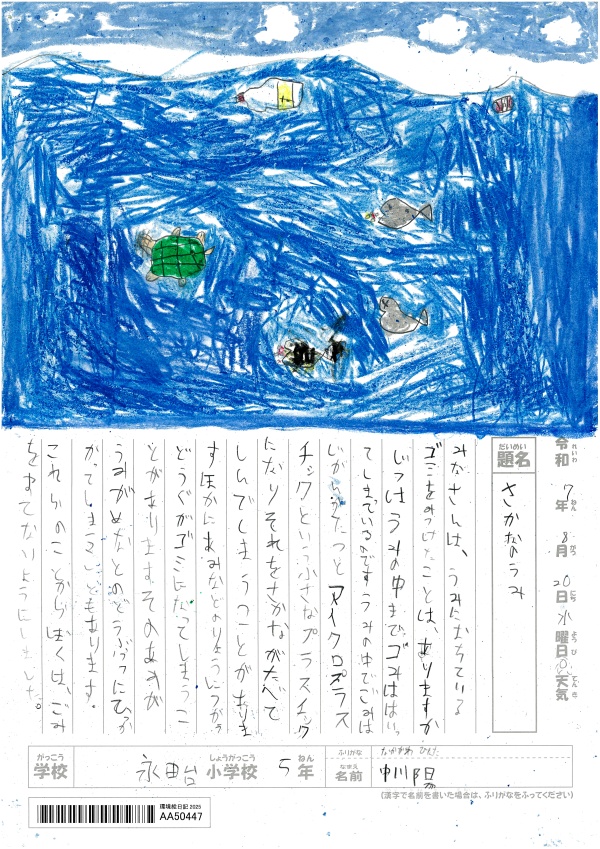 令和 7年 8月 20日 水曜日 天気
れいわ ねん がつ にち ようび てんき
だいめい
題名 さかなのうみ
みなさんは、うみにおちている
ゴミをみつけたことは、ありますか
じつはうみの中まで、ゴミははいっ
てしまっているのです うみの中でごみは
じかんがたつと マイクロプラス
チックという小さなプラスチック
になりそれをさかながたべて
しんでしまうことがありま
すほかにあみなどのりょうにつかう
どうぐがゴミになってしまうこ
とがありますそのあみが
うみがめなどのどうぶつにひっか
かってしまうこともあります。
これらのことからぼくは、ごみ
をすてないようにしました。
がっこう しょうがっこう ねん ふりがな
学校 永田台 小学校 5年
なまえ
名前 中川陽
(漢字で名前を書いた場合は、ふりがなをふってください)
環境絵日記 2025
AA50447